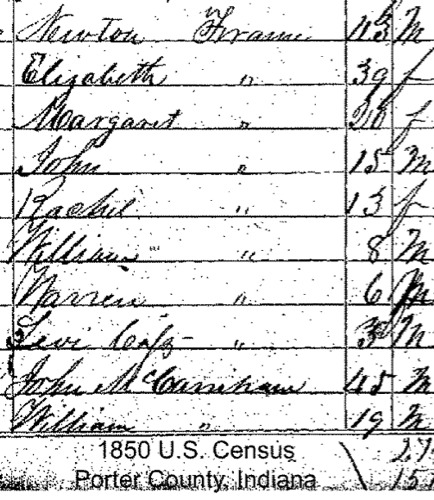 Newton Frame 43 M
Elizabeth " 39 f
Margaret " f
John " 15 M
Rachel " 13 f
William " 8 M
Warren " 6 M
Levi " 3 M
John 45 M
William " 19 M
1850 U.S. Census
Porter County, Indiana